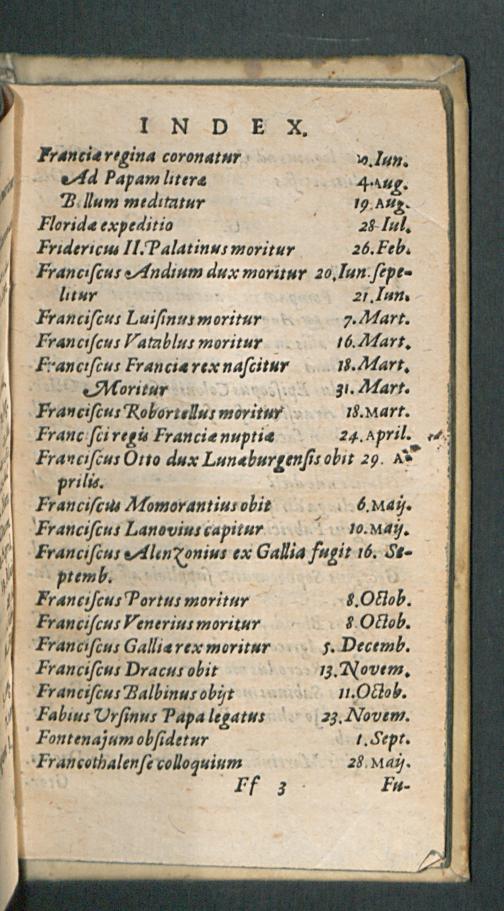 INDEX.
Franciæ regina coronatur Iun.
Ad Papam literæ 4.Aug.
Bellum meditatur 19.Aug.
Floridæ expeditio 28.Iul.
Fridericus II. Palatinus moritur 26.Feb.
Franciſcus Andium dux moritur 20.Iun. ſepe-
litur 21.Iun.
Franciſcus Luiſinus moritur 7.Mart.
Franciſcus Vatablus moritur 16.Mart.
Franciſcus Franciæ rex naſcitur 18.Mart.
Moritur 31.Mart.
Franciſcus Robortellus moritur 18.Mart.
Franciſci regis Franciæ nuptiæ 24.April.
Franciſcus Otto dux Lunæburgenſis obit 29. A-
prilis.
Franciſcus Momorantius obit 6.Maij.
Franciſcus Lanovius capitur 10.Maij.
Franciſcus Alenzonius ex Gallia fugit 16. Se-
ptemb.
Franciſcus Portus moritur 8.Octob.
Franciſcus Venerius moritur 8 Octob.
Franciſcus Galliæ rex moritur 5. Decemb.
Franciſcus Dracus obit 13.Novem.
Franciſcus Balbinus obijt 11.Octob.
Fabius Urſinus Papa legatus 23.Novem.
Fontenajum obſidetur 1.Sept.
Francothalenſe colloquium 28.Maij.
Ff 3 Fu-